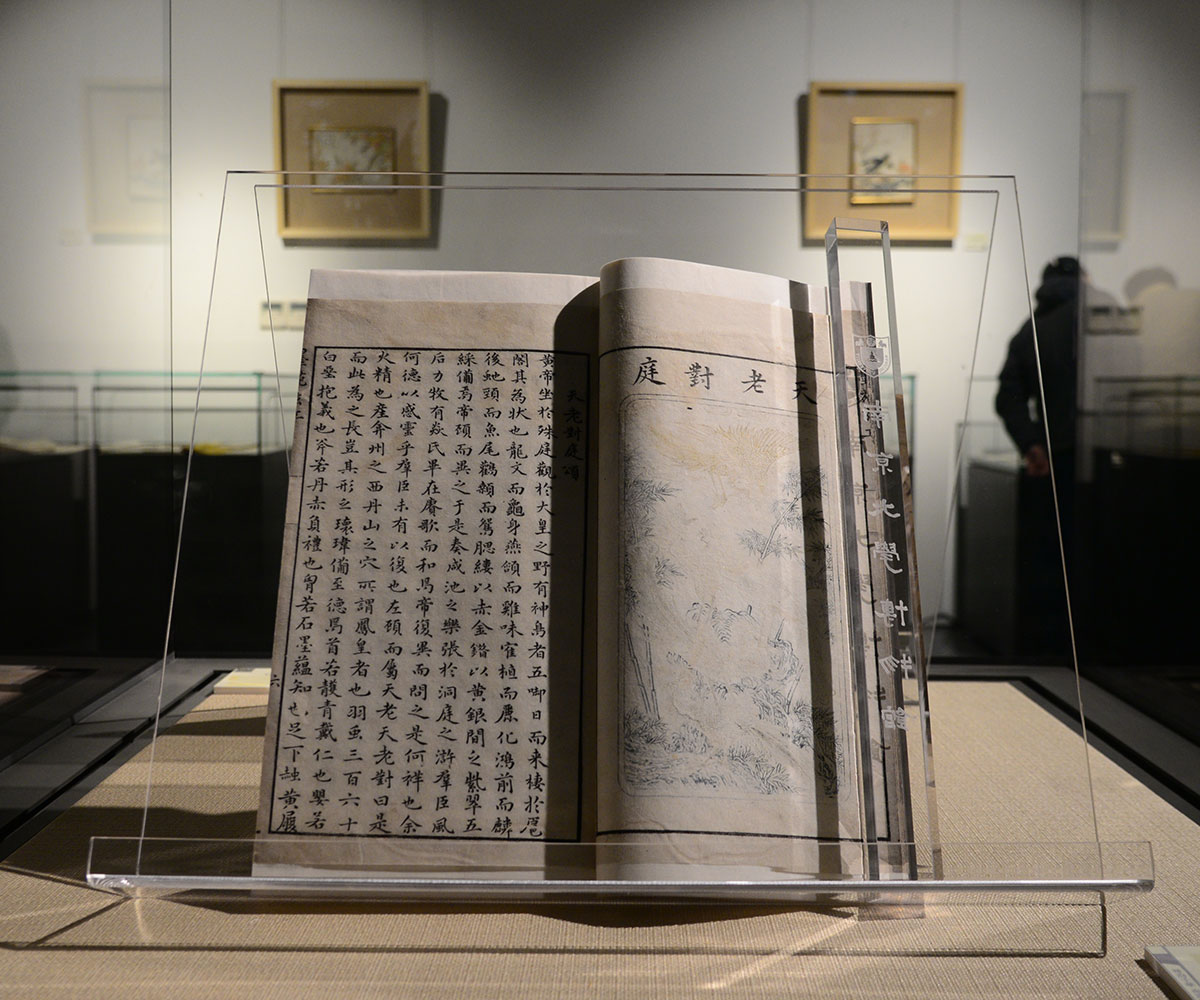 天老對庭
南京大學博物館
天老對庭頌
黃帝坐於殊庭觀於大皇之野有神鳥者五啣日而来棲於邕
閣其為狀也龍文而龜身燕頷而雞咮寉植而麃化鴻前而麟
後虵頸而魚尾鸛顙而鴛腮縷以赤金鍇以黃銀間之紫翠五
綵備焉帝頋而異之于是奏咸池之樂張於洞庭之滸羣臣風
后力牧有焱氏畢在賡歌而和焉帝復異而問之是何祥也余
何德以感靈乎羣臣未有以復也左頋而屬天老天老對曰是
火精也産弇州之西丹山之穴所謂鳳皇者也羽虫三百六十
而此為之長豈其形之瓌瑋備至德焉首若頀青戴仁也嬰若
白堊抱義也斧若丹赤負禮也胷若石墨蘊知也足下黃履
六